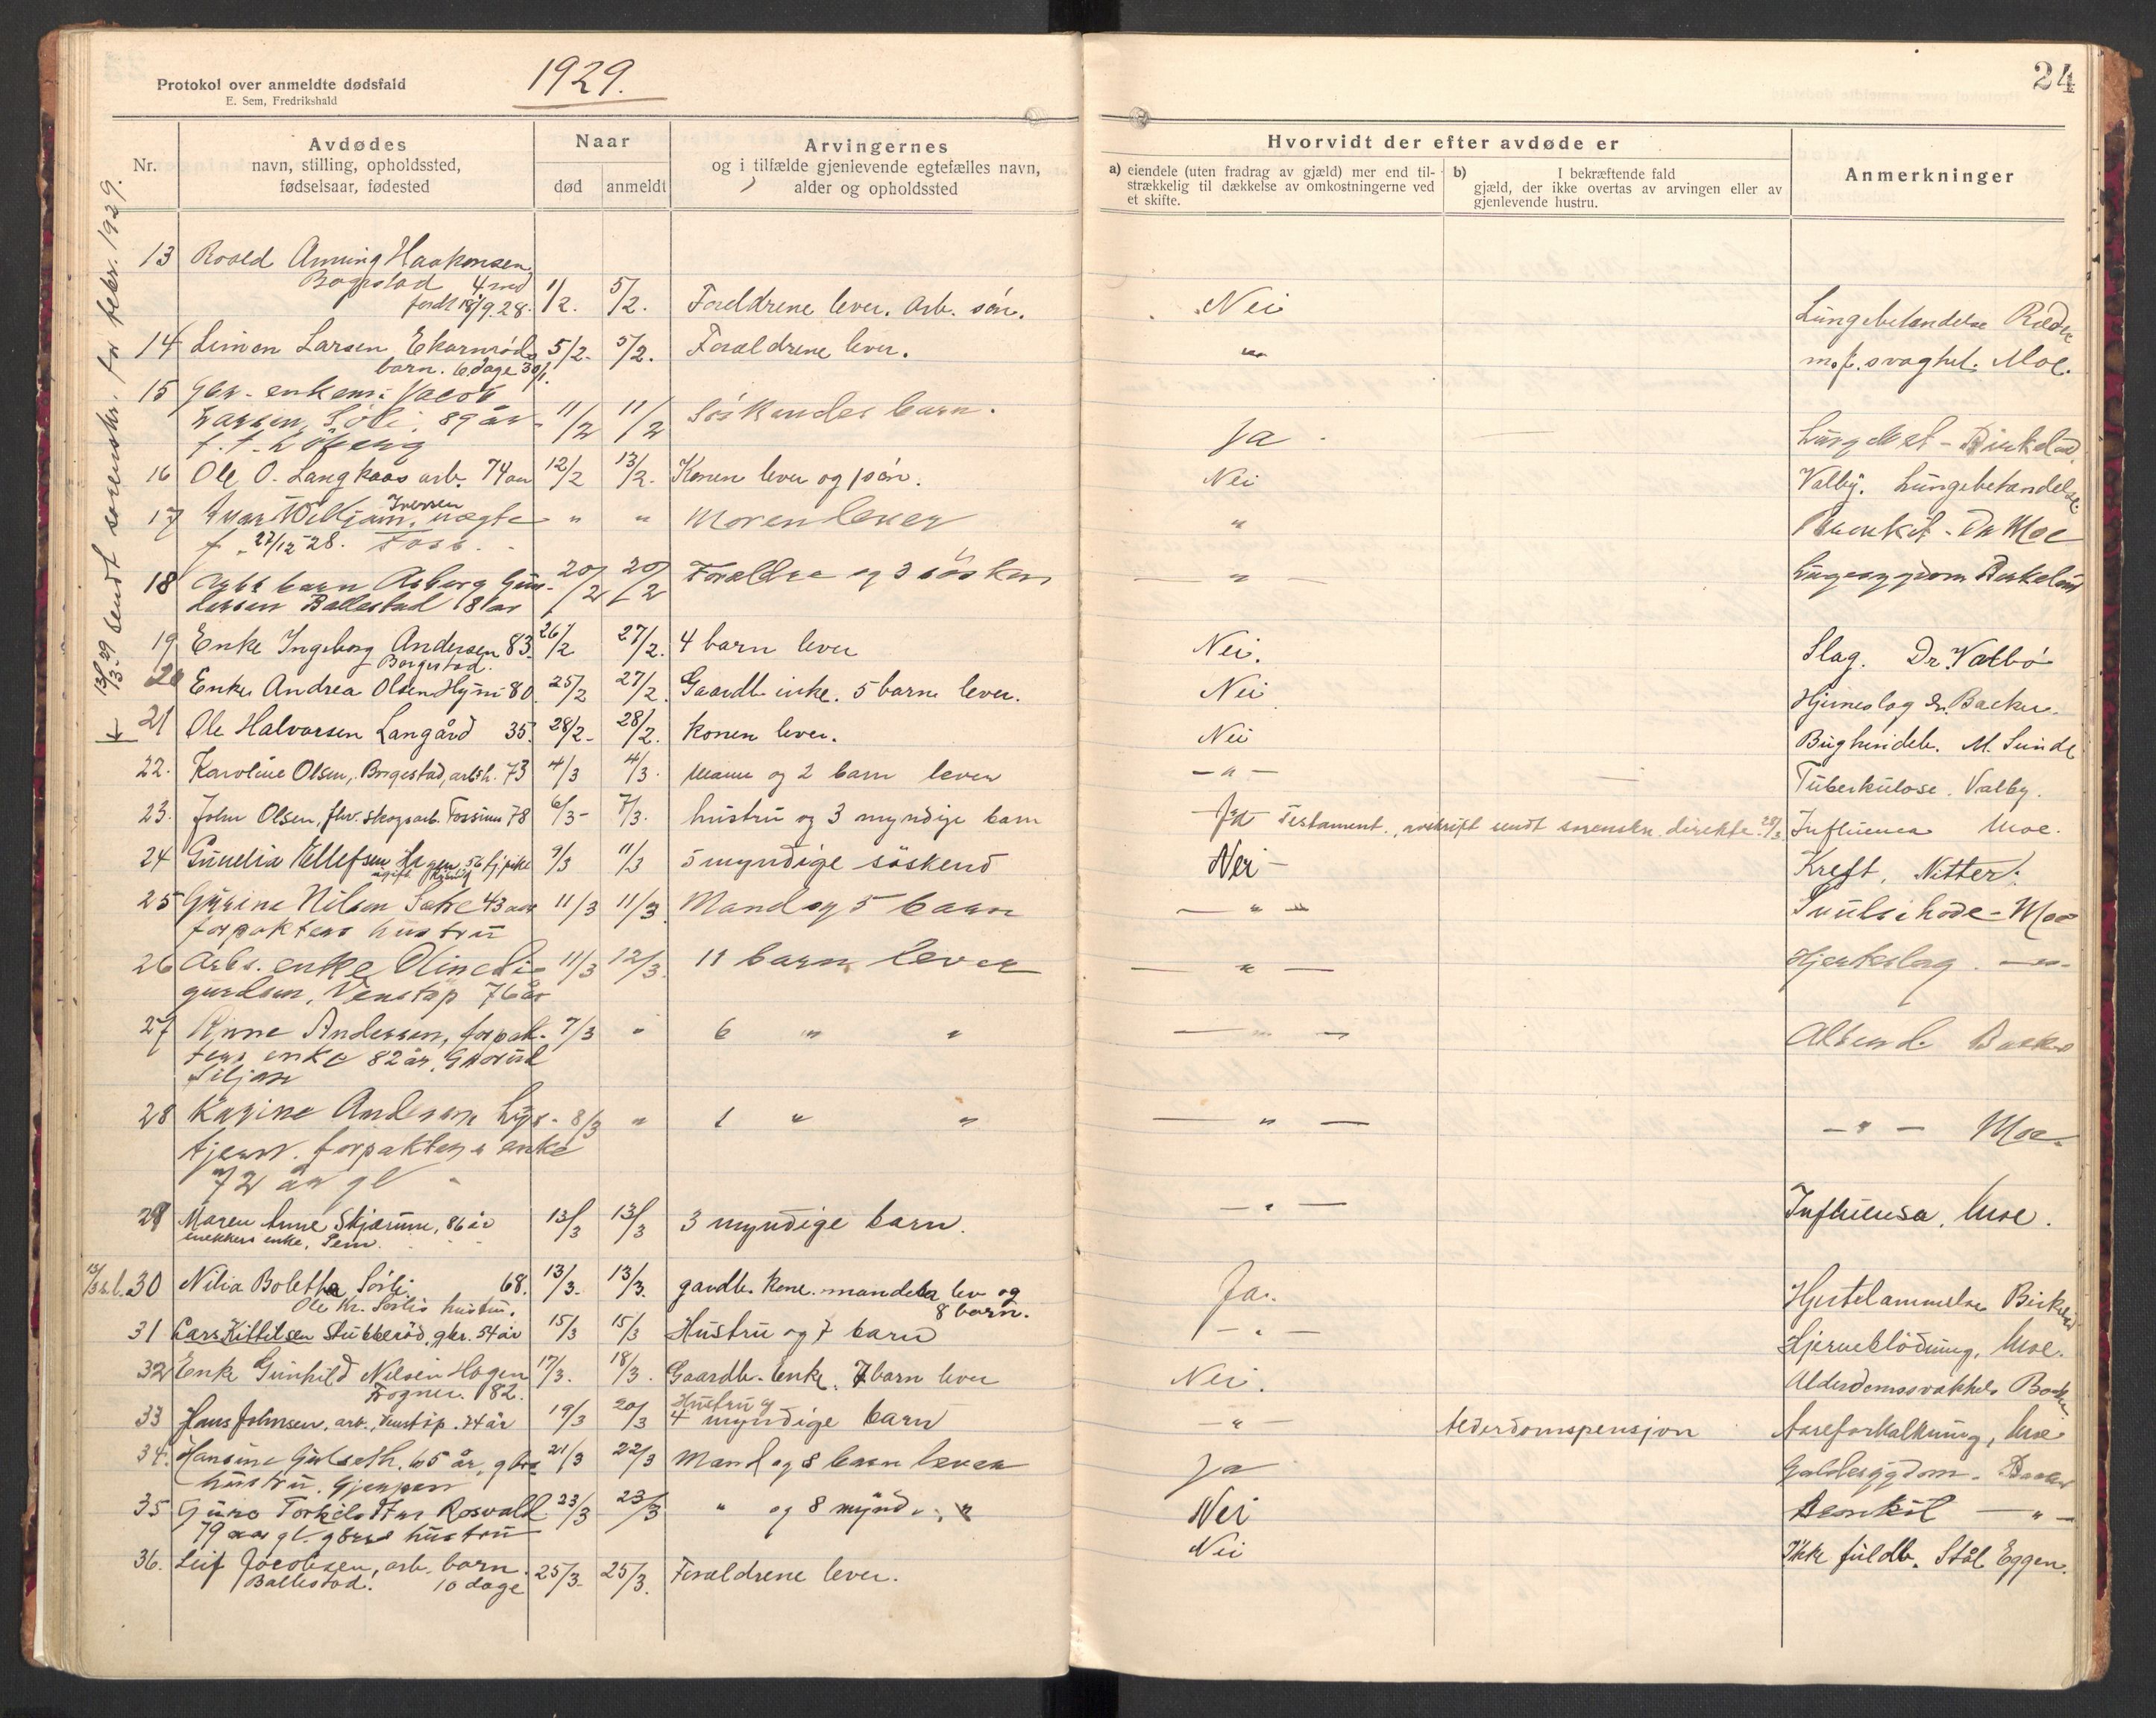 1929.
24
Protokol over anmeldte dødsfald
E. Sem, Fredrikshald
Nr.
Avdødes
navn, stilling, opholdssted,
fødselsaar, fødested
Naar
død
anmeldt
Arvingernes
og i tilfælde gjenlevende egtefælles navn,
alder og opholdssted
Hvorvidt der efter avdøde er
a) eiendele (uten fradrag av gjæld) mer end til-
strækkelig til dækkelse av omkostningerne ved
et skifte.
b) I bekræftende fald
gjæld, der ikke overtas av arvingen eller av
gjenlevende hustru.
Anmerkninger
13/3-29 sendt sorenskr. for febr. 1929.
13 Roald Arming Haakonsen
Borgestad 4 mnd
født 18/9.28. 1/2. 5/2. Forældrene lever. Arb. søn. Nei Lungebetændelse
14 Simon Larsen 5/2. 5/2. Forældrene lever. " m.f. svaghet. Moe.
barn. 6 dage 30/1.
15 Gbr. enkem. Jacob
Larsen, Søli, 89 år 11/2 11/2 Søskendes barn. Ja —
16 Ole O. Langkaas arb. 74 aar 12/2 13/2. Konen lever og 1 søn. Nei Valby. Lungebetændelse
17 Ivar William Iversen, uægte " " Moren lever " Dr Moe
f. 27/12-28. Foss.
18 Arbs barn Asborg Gun- 20/2 20/2 Forældre og 3 søsken — " —
Ballestad 8 år
19 Enke Ingeborg Andersen 83. 26/2 27/2. 4 barn lever Nei. Slag. Dr. Valbø
Borgestad.
20 Enke Andrea Olsen Hyni 80. 25/2 27/2. Gaardb. enke. 5 barn lever. Nei Hjerneslag Dr. Backer.
21 Ole Halvorsen Langård 35. 28/2- 28/2. Konen lever. Nei Bughindeb. M. Sunde
22. Karoline Olsen, Borgestad, arbsh. 73 4/3 4/3. Mann og 2 barn lever — " — — Tuberkulose. Valby.
23. John Olsen, fhv. skogsarb. Fossum 78 6/3- 7/3. hustru og 3 myndige barn Ja Testament., avskrift sendt sorenskr. direkte. Influensa Moe.
24 Gunelia Ellefsen Hagen, 56 9/3 11/3 5 myndige søskend Nei — Kreft, Nitter.
ugift
25 Gurine Nilsen 43 aar 11/3 11/3. Mand og 5 barn — " — Moe
forpakters hustru
26 Arbs. enke Oline Si- 11/3 12/3. 11 barn lever — " — Hjerteslag. — " —
gurdsen, Venstøp 76 år
27 Anne Andersen, forpak- 7/3 " 6 " " — " — Backer
ters enke 82 år,
Siljan
28 Karine Andersen Lys- 8/3 " 1 " " — " — — " — Moe.
tjern. forpakters enke
72 år gl
29 Maren Anne Skjærum, 86 år 13/3 13/3 3 myndige barn. — " — Influensa, Moe.
enke,
30 Nilia Boletha Sørli. 68. 13/3. 13/3. gaardb. Kone. manden lev og Ja.
Ole Kr. Sørlis hustru. 8 barn. Hjertelammelse
31 Lars Kittilsen Stubberød, gbr. 54 år 15/3 15/3 Hustru og 7 barn — " — Hjerneblødning, Moe.
32 Enke Gunhild Nilsen Hagen 17/3. 18/3. Gaardb. Enke. 7 barn lever Nei. Alderdomssvakhet
Fogner. 82.
33 Hans Johnsen, arb., Venstøp. 74 år 19/3 20/3 Hustru og
4 myndige barn — " — Alderdomspensjon Aareforkalkning, Moe
34. Hansine Gulseth. 65 år, gbrs 21/3 22/3 Mand og 8 barn lever Ja Galdesygdom.
hustru. Gjerpen
35 Guro Torkilsdtter Rosvald 23/3 23/3 " og 8 mynd. " Nei — " —
79 aar gl. gbrs hustru
36. Leif Jacobsen, arb. barn. 25/3- 25/3. Forældrene lever. Nei Ikke fuldb. Stål Eggen.
Ballestad. 10 dage